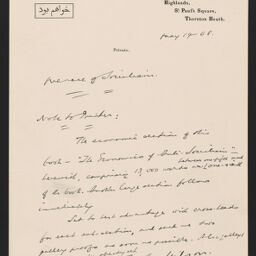 خواهم بود
Highlands,
St Paul's Square,
Thornton Heath.
May 19 - 08.
Private.
Menace of Socialism.
Note to Printer:
The economic section of this
book - "The Economics of Anti-Socialism" -
herewith, comprising 13,000 words
of the book. Another large section follows
immediately
Set to best advantage with cross-heads
for each sub section, and send me two
galley proofs as soon as possible.